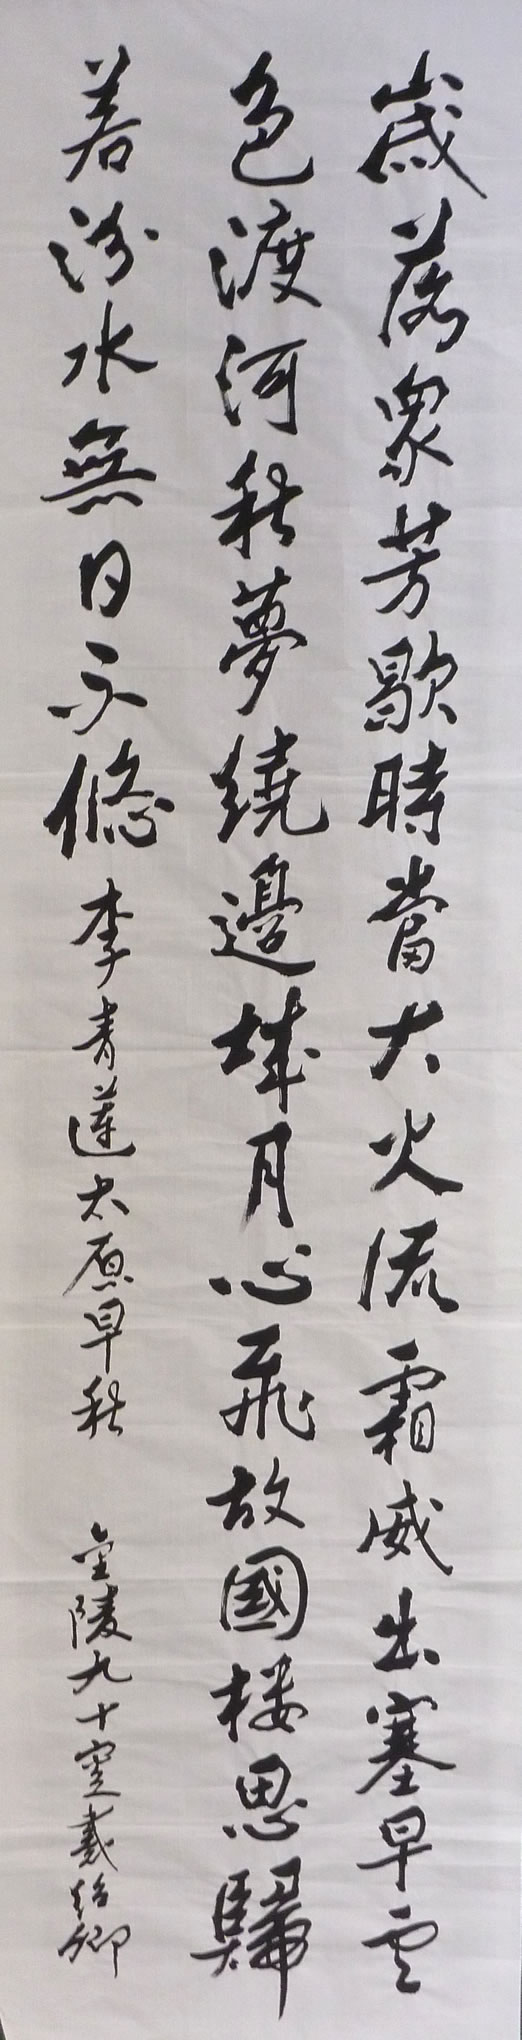 歲落衆芳歇時當大火流霜威出塞早雲
色渡河秋夢繞邊城月心飛故國樓思歸
若汾水無日不悠李青蓮太原早秋金陵九十叟戴紹卿